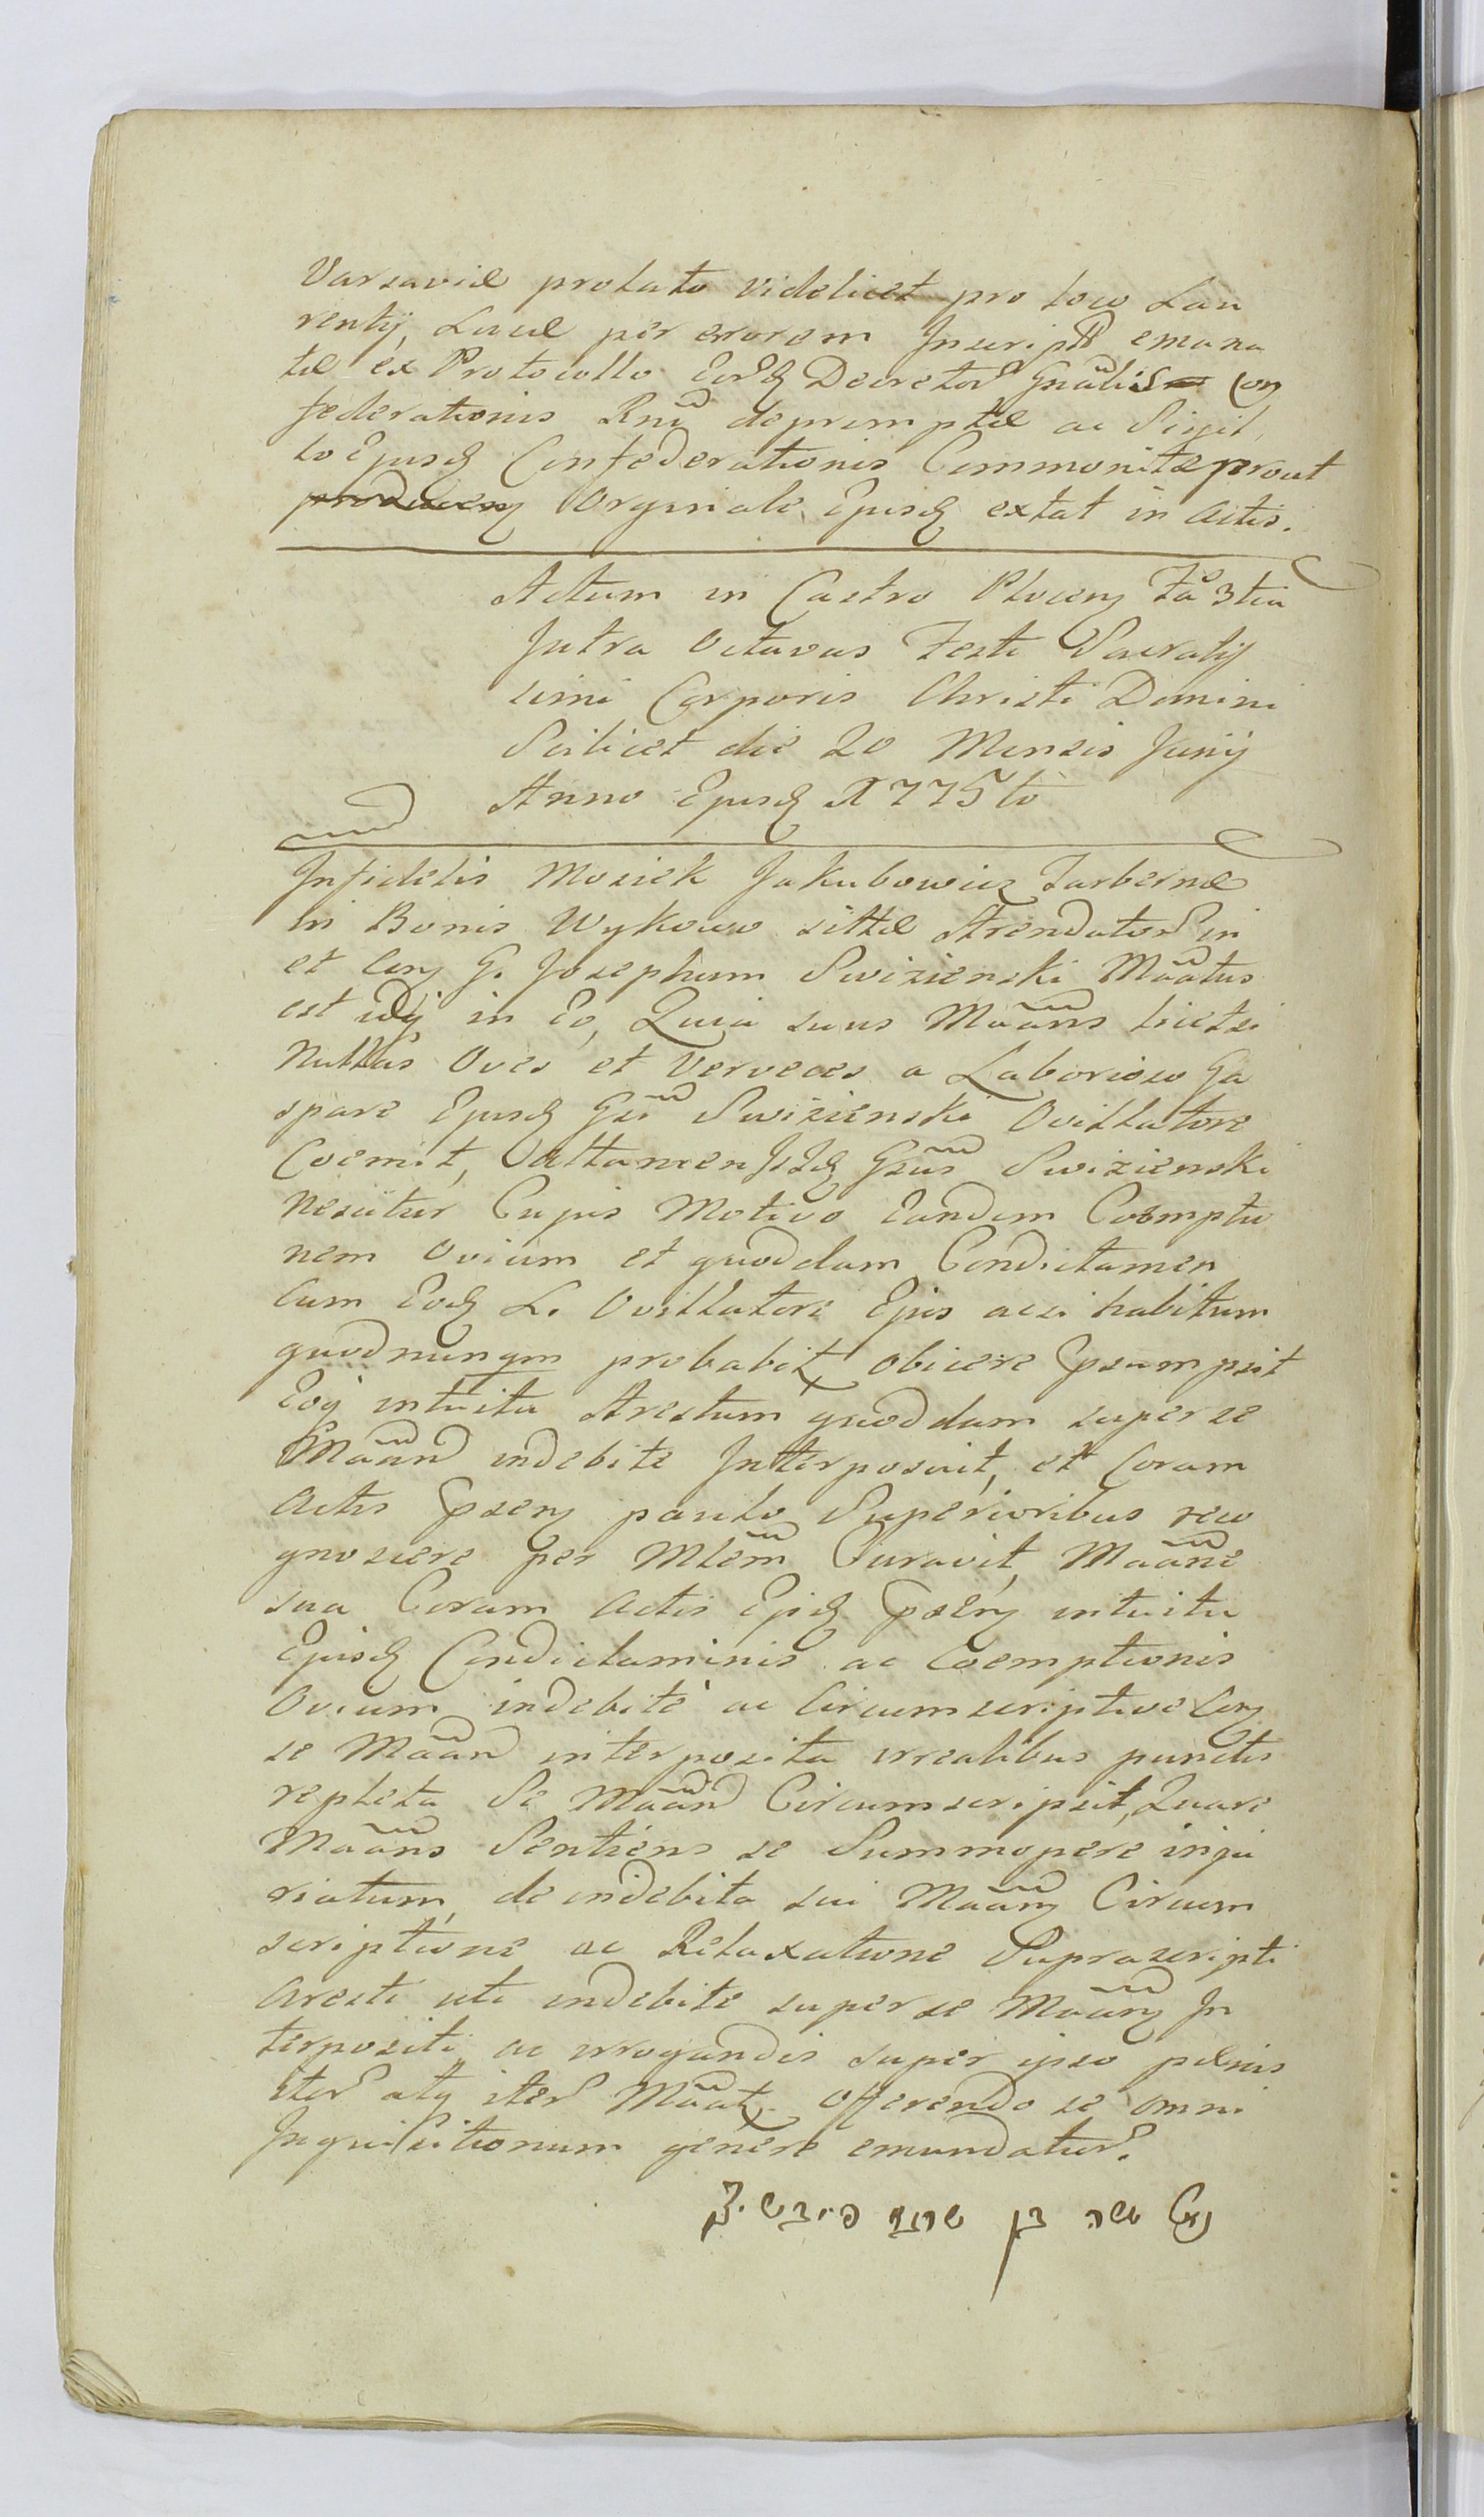 Varsaviæ prolato videlicet pro loco Lau
rentij, Lucæ per errorem Inscript emana
tæ ex Protocollo Eorq Decretor Gnãlis Con
federationis Rni depremptæ ac Sigil
lo Ejusq Confederationis Communitæ prout
Orginale Ejusq extat in Actis.
Actum in Castro Plocen Fã 3tia
Intra Octavas Festi Sacratis
simi Corporis Christi Domini
Scilicet die 20 Mensis Junij
Anno Ejusq 1775to
Infidelis Mosiek Jakubowicz Tarbernæ
in Bonis Wykowo sittæ Arendator in
et Con G. Josephum Swizienski Mãatus
est in Eo, Quia suus Mãans licet si
Nullas Oves et Verveces a Laborioso Ga
spare Ejusq Gsi Swizienski Ovillatore
Coemit, Attamen Isq Gsus Swizienski
Nescitur Cujus Motivo Eandem Coemptio
nem Ovium et quoddam Condictamen
Cum Eodq L. Ovillatore Ejus acsi habitum
quod nunqm probabit obicere Psumpsit
Eoq intuitu Arestum quoddam super se
Mãan indebite Interposuit, et Coram
Actis Psen paulo Superioribus reco
gnoscere per Mlem Curavit, Mãane
sua Coram Actis Ejsq Psen intuitu
Ejusq Condictaminis ac Coemptionis
Ovium indebitè ac Circumscriptive Con
se Mãan interposita irrealibus punctis
repleta Se Mãan Circumscripsit, Quare
Mãans Sentiens se Summopere inju
riatum, de indebita sui Mãan Circum
scriptione ac Relaxatione Suprascripti
Aresti uti indebite super se Mãan In
terpositi ac irrogandis super ipso pænis
iter atq iter Mãat. offerendo se omni
Inquisitionum genere emundatur.
משה בן